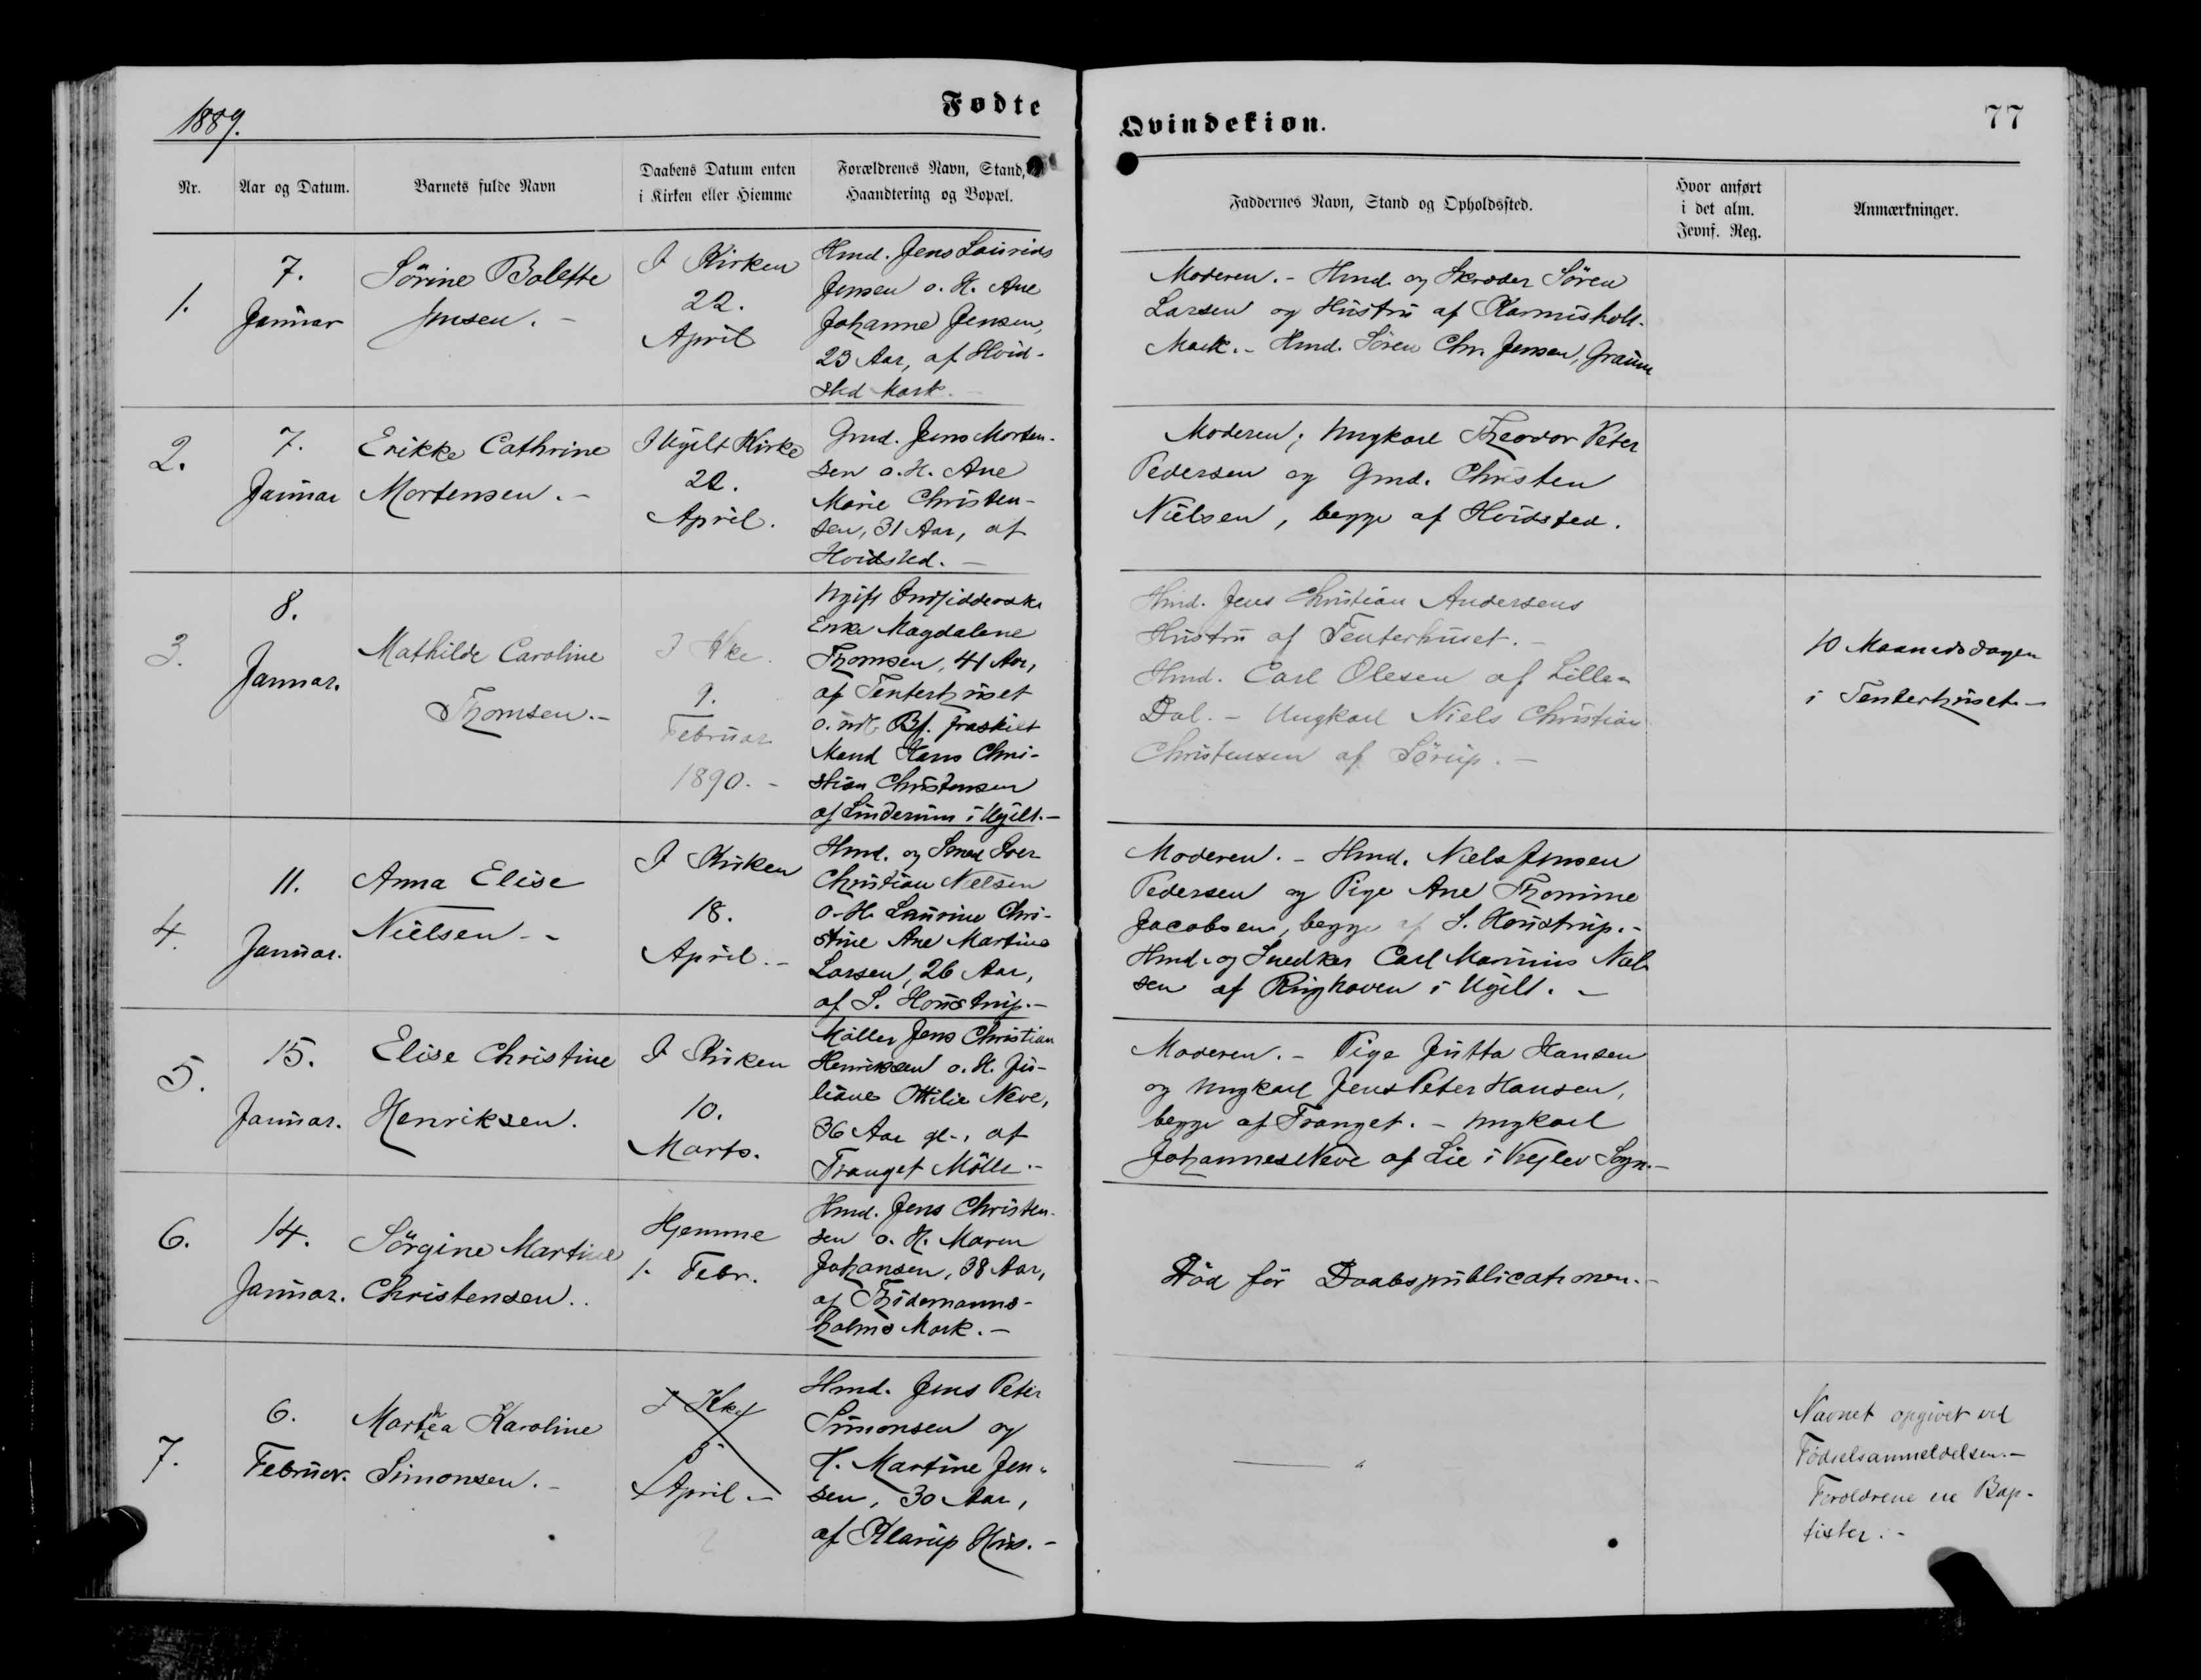 1889.
Fødte
Qvindekiøn.
77
Nr.
Aar og Datum.
Barnets fulde Navn
Daabens Datum enten
i Kirken eller Hiemme
Forældrenes Navn, Stand,
Haandtering og Bopæl.
Faddernes Navn, Stand og Opholdssted.
Hvor anført
i det alm.
Jevnf. Reg.
Anmærkninger.
1.
7.
Januar
Sörine Bolette
Jensen. -
I Kirken
22.
April
Hmd. Jens Laurids
Jensen o. H. Ane
Johanne Jensen,
23 Aar, af Hvid-
sted Mark. -
Moderen. - Hmd. og Skræder Sören
Larsen og Hustru af
Mark. - Hmd. Sören Chr. Jensen,
2.
7.
Januar
Erikke Cathrine
Mortensen. -
I Ugilt Kirke
22.
April.
Gmd. Jens Morten-
sen o. H. Ane
Marie Christen-
sen, 31 Aar, af
Hvidsted. -
Moderen; Ungkarl Theodor Peter
Pedersen og Gmd. Christen
Nielsen, begge af Hvidsted.
3.
8.
Januar.
Mathilde Caroline
Thomsen. -
I Kke.
9.
Februar
1890. -
Ugift Indsidderske
Enke Magdalene
Thomsen, 41 Aar,
af Tenterhuset
o. udl. Bf. fraskilt
Mand Hans Chri-
stian Christensen
af Linderum i Ugilt. -
Hmd. Jens Christian Andersens
Hustru af Tenterhuset. -
Hmd. Carl Olesen af Lille-
Dal. - Ungkarl Niels Christian
Christensen af Sörup. -
10 Maanedsdagen
i Tenterhuset. -
4.
11.
Januar.
Anna Elise
Nielsen - -
I Kirken
18.
April. -
Hmd. og Smed Iver
Christian Nielsen
o. H. Laurine Chri-
stine Ane Martine
Larsen, 26 Aar,
af S. Houstrup. -
Moderen. - Hmd. Niels Jensen
Pedersen og Pige Ane Thomine
Jacobsen, begge af S. Houstrup. -
Hmd. og Snedker Carl Marinus Niel-
sen af Ringhaven i Ugilt. -
5.
15.
Januar.
Elise Christine
Henriksen.
I Kirken
10.
Marts.
Møller Jens Christian
Henriksen o. H. Ju-
liane Ottilie Neve,
36 Aar gl., af
Tranget Mölle. -
Moderen. - Pige Jutta Hansen
og Ungkarl Jens Peter Hansen,
begge af Tranget. - Ungkarl
Johannes Neve af Lie i Vrejlev Sogn. -
6.
14.
Januar.
Sörgine Martine
Christensen. .
Hjemme
1. Febr.
Hmd. Jens Christen-
sen o. H. Maren
Johansen, 38 Aar,
af Thidemanns-
holms Mark. -
Död för Daabspublicationen. -
7.
6.
Februar.
Marthea Karoline
Simonsen. -
I Kke
5
April -
Hmd. Jens Peter
Simonsen og
H. Martine Jen-
sen, 30 Aar,
af Klarup Hus. -
— "
Navnet opgivet ved
Födselsanmeldelsen. -
Forældrene ere Bap-
tister. -